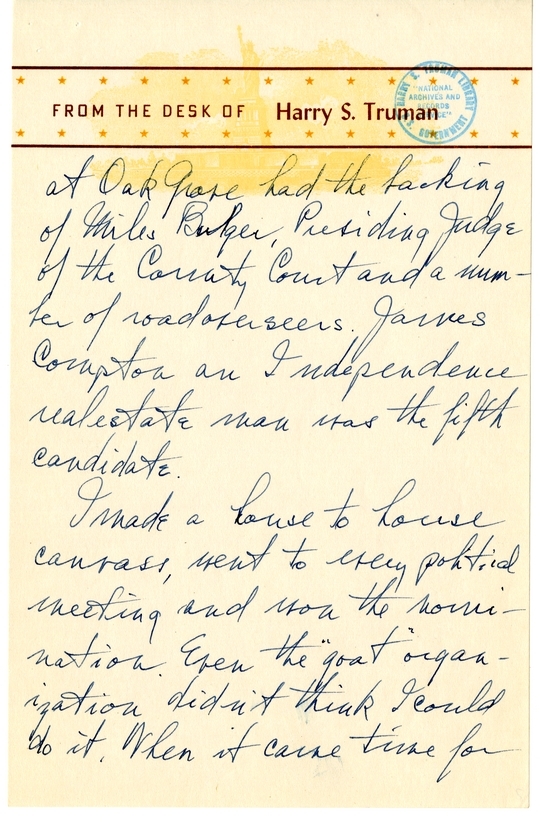 FROM THE DESK OF Harry S. Truman
HARRY S. TRUMAN LIBRARY
"NATIONAL
ARCHIVES AND
RECORDS
SERVICE"
U.S. GOVERNMENT
at Oak Grove had the backing
of Miles Bulger, Presiding Judge
of the County Court and a num-
ber of roadoverseers. James
Compton an Independence
realestate man was the fifth
candidate.
I made a house to house
canvass, went to every political
meeting and won the nomi-
nation. Even the "goat" organ-
ization didn't think I could
do it. When it came time for